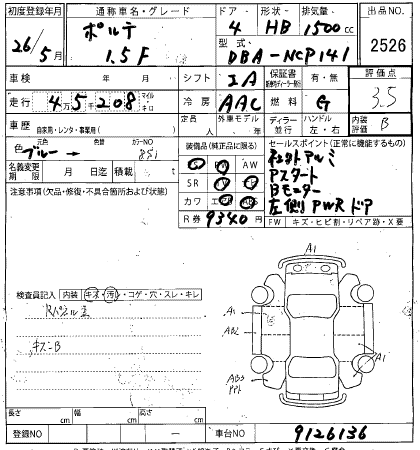 初度登録年月 通称車名・グレード ドア 形状 排気量 出品NO
26/5月 ポルテ 1.5F 4 HB 1500cc 2526
型式 DBA-NCP141
車検 年 月 シフト IA 保証書 有・無 評価点
走行 4万5千208 マイル キロ 冷房 AAC 燃料 G 3.5
車歴 自家用・レンタ・事業用( ) 定員 人 外車モデル 年 ディーラー 並行 ハンドル 左・右 内装評価 B
色 元色 ブルー → 色替 カラーNO 851
装備品(純正品に限る) セールスポイント(正常に機能するもの)
名義変更期限 月 日迄 積載
アルミ
注意事項(欠品・修復・不具合箇所および状態) SR Pスタート
Bモニター
カワ エアB 左側PWRドア
R券 9340円 FW キズ・ヒビ割・リペア跡・X要
A1
検査員記入 内装 キズ・汚レ・コゲ・穴・スレ・キレ
A1
AB2
キズ=B
A1
AB3
長さ cm 幅 cm 高さ cm
登録NO - 車台NO 9126136